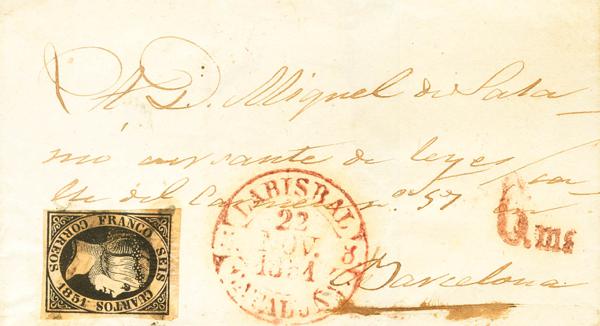 A D. Miguel de Sala-
mó cursante de leyes, ca-
lle del Carmen nº 57 en
Barcelona
6 ms
LABISBAL 8
22
NOV.
1851
CATALUÑA
FRANCO SEIS
CUARTOS 1851 CORREOS